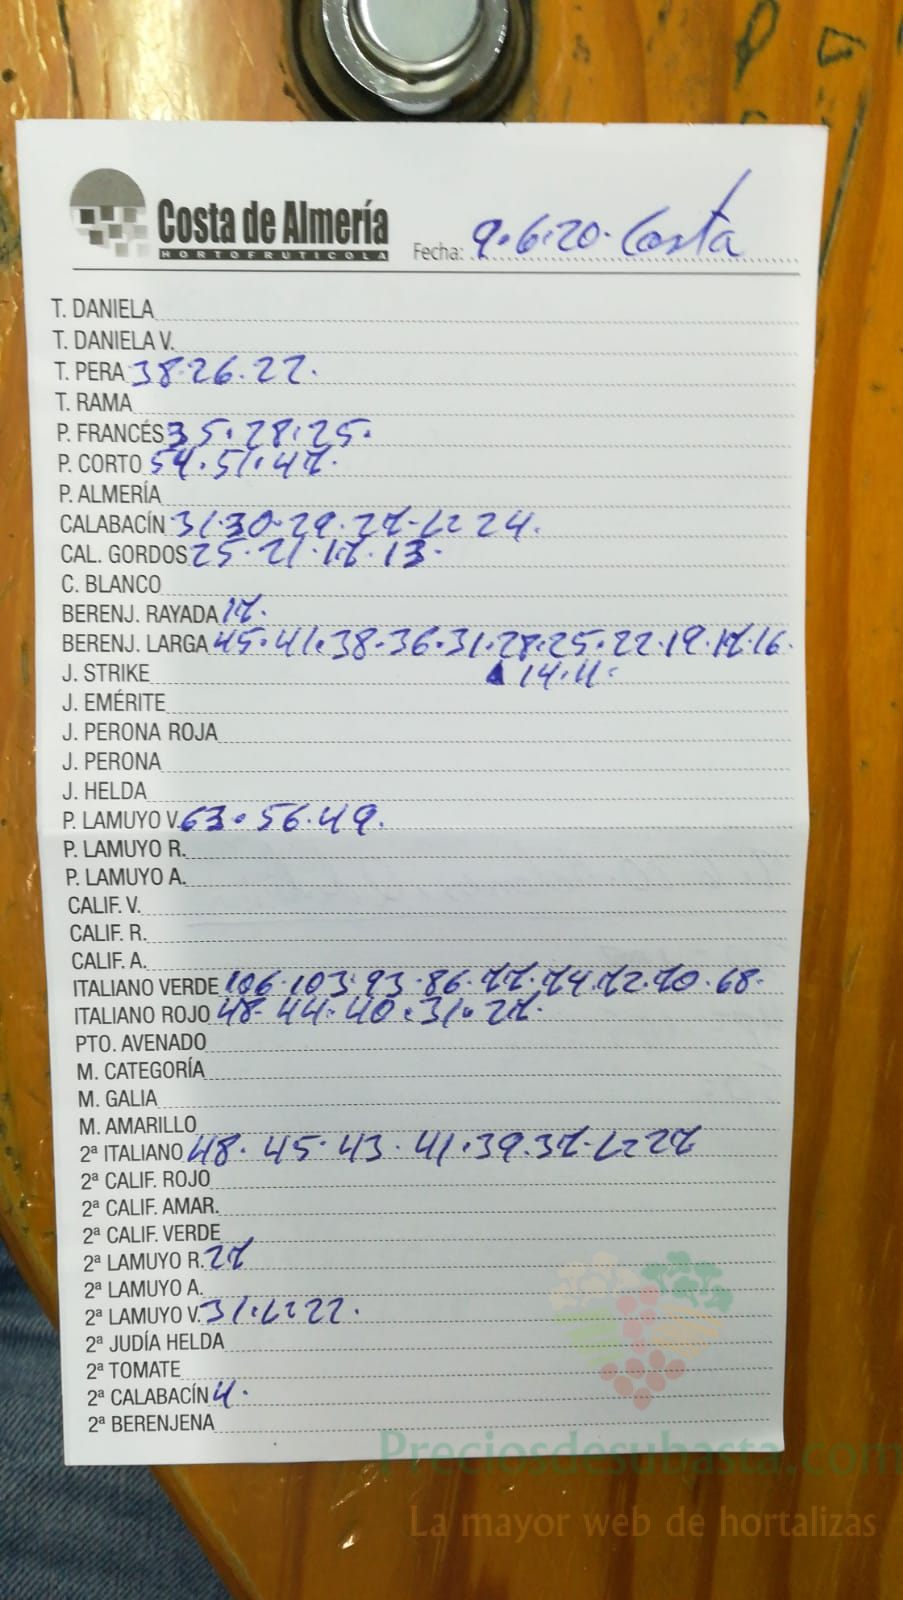 Costa de Almería
HORTOFRUTICOLA
Fecha: 9.6.20. Costa
T. DANIELA
T. DANIELA V.
T. PERA 38.26.22.
T. RAMA
P. FRANCÉS 35.28.25.
P. CORTO 54.51.47.
P. ALMERÍA
CALABACÍN 31.30.29.27. 24.
CAL. GORDOS 25.21.17.13.
C. BLANCO
BERENJ. RAYADA 17.
BERENJ. LARGA 45.41.38.36.31.28.25.22.19.17.16.
14.11.
J. STRIKE
J. EMÉRITE
J. PERONA ROJA
J. PERONA
J. HELDA
P. LAMUYO V. 63.56.49.
P. LAMUYO R.
P. LAMUYO A.
CALIF. V.
CALIF. R.
CALIF. A.
ITALIANO VERDE 106.103.93.86.77.74.72.70.68.
ITALIANO ROJO 48.44.40.31.27.
PTO. AVENADO
M. CATEGORÍA
M. GALIA
M. AMARILLO
2ª ITALIANO 48.45.43.41.39.37. 27
2ª CALIF. ROJO
2ª CALIF. AMAR.
2ª CALIF. VERDE
2ª LAMUYO R. 27
2ª LAMUYO A.
2ª LAMUYO V. 31. 22.
2ª JUDÍA HELDA
2ª TOMATE
2ª CALABACÍN
2ª BERENJENA
Preciosdesubasta.com
La mayor web de hortalizas